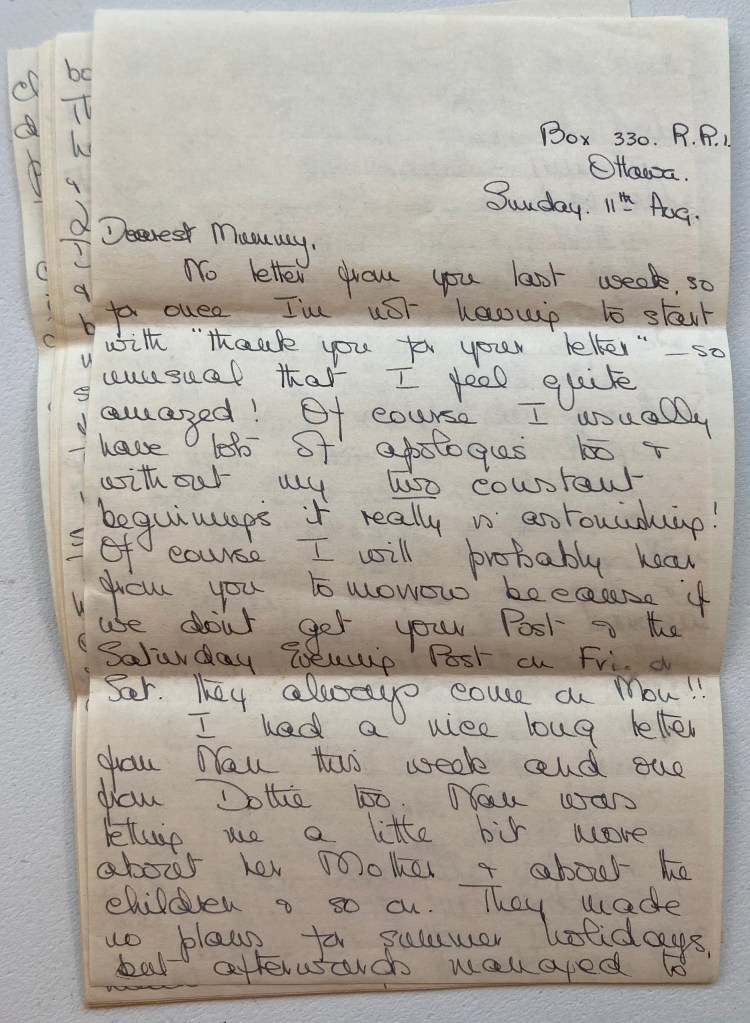 Box 330. R.R.1.
Ottawa.
Sunday. 11th Aug.
Dearest Mummy,
No letter from you last week, so
for once I'm not having to start
with "thank you for your letter" – so
unusual that I feel quite
amazed! Of course I usually
have lots of apologies too &
without my two constant
beginnings it really is astonishing!
Of course I will probably hear
from you tomorrow because if
we don't get your Post & the
Saturday Evening Post on Fri. or
Sat. they always come on Mon!!
I had a nice long letter
from Nan this week and one
from Dottie too. Nan was
letting me a little bit more
about her Mother & about the
children & so on. They made
no plans for summer holidays,
but afterwards managed to